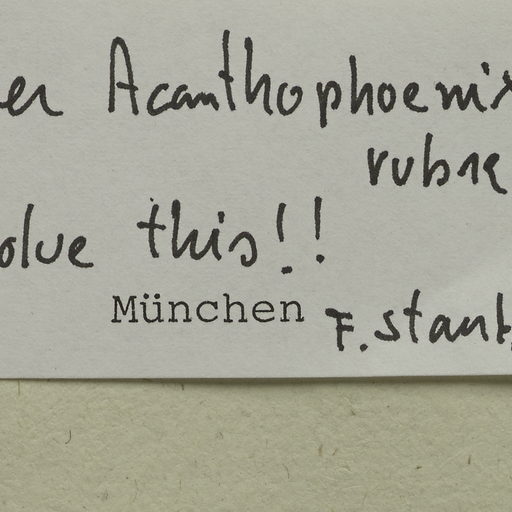 er Acanthophoenix
rubra
olve this!!
München F. Stant